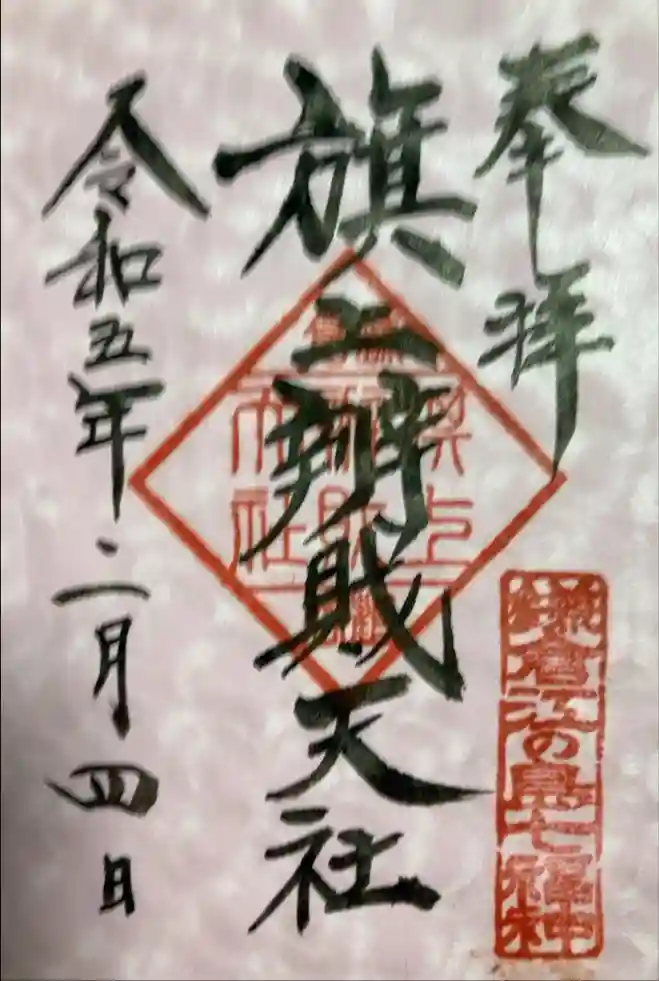 奉拝
鎌倉江の島七福神
旗上辨財天社
令和五年二月四日